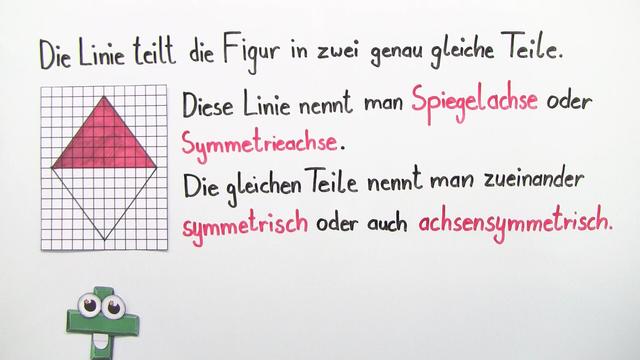 Die Linie teilt die Figur in zwei genau gleiche Teile.
Diese Linie nennt man Spiegelachse oder
Symmetrieachse.
Die gleichen Teile nennt man zueinander
symmetrisch oder auch achsensymmetrisch.